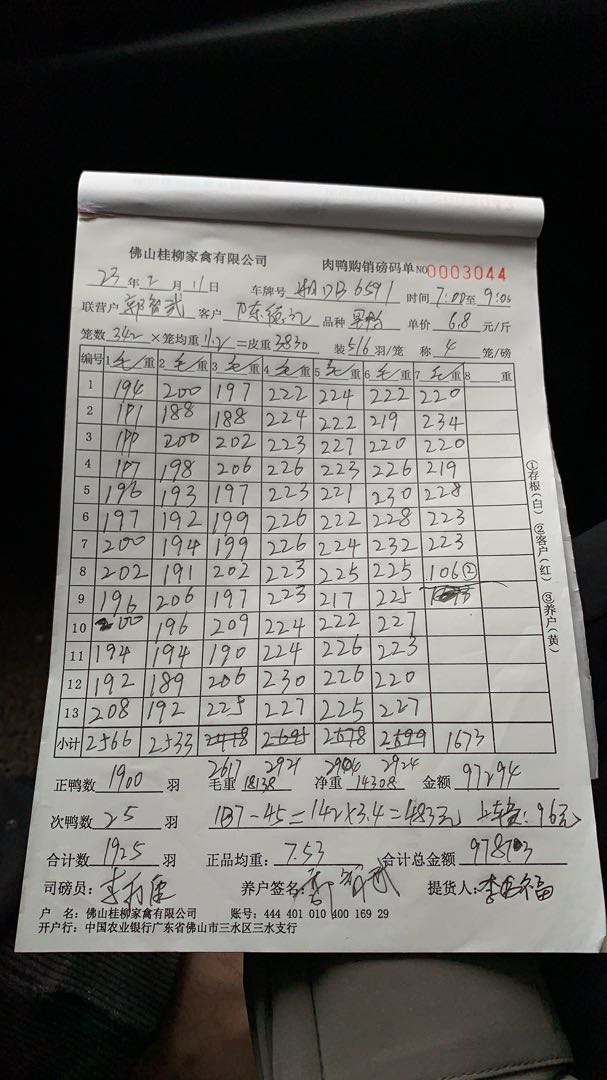 佛山桂柳家禽有限公司 肉鸭购销磅码单 NO 0003044
23年2月11日 车牌号 6591 时间7:00至9:03
联营户 客户 品种 单价6.8元/斤
笼数342×笼均重11.2=皮重3830 装5/6羽/笼 称4笼/磅
编号 1毛/重 2毛/重 3毛/重 4毛/重 5毛/重 6毛/重 7毛/重 8 重
1 194 200 197 222 224 222 220
2 191 188 188 224 222 219 234
3 199 200 202 223 227 220 220
4 197 198 206 226 223 226 219
5 196 193 197 223 221 230 228
6 197 192 199 226 222 228 223
7 200 194 199 226 224 232 223
8 202 191 202 223 225 225 106②
9 196 206 197 223 217 225
10 200 196 209 224 222 227
11 194 194 190 224 226 223
12 192 189 206 230 226 220
13 208 192 225 227 225 227
小计 2566 2533 1673
2617 2921 2904 2924
正鸭数1900羽 毛重18138 净重14308 金额97294
次鸭数25羽 187-45=142×3.4=483元 上车费:96元
合计数1925羽 正品均重:7.53 合计总金额97873
司磅员: 养户签名: 提货人:
户 名:佛山桂柳家禽有限公司 账号:444 401 010 400 169 29
开户行:中国农业银行广东省佛山市三水区三水支行
①存根(白) ②客户(红) ③养户(黄)